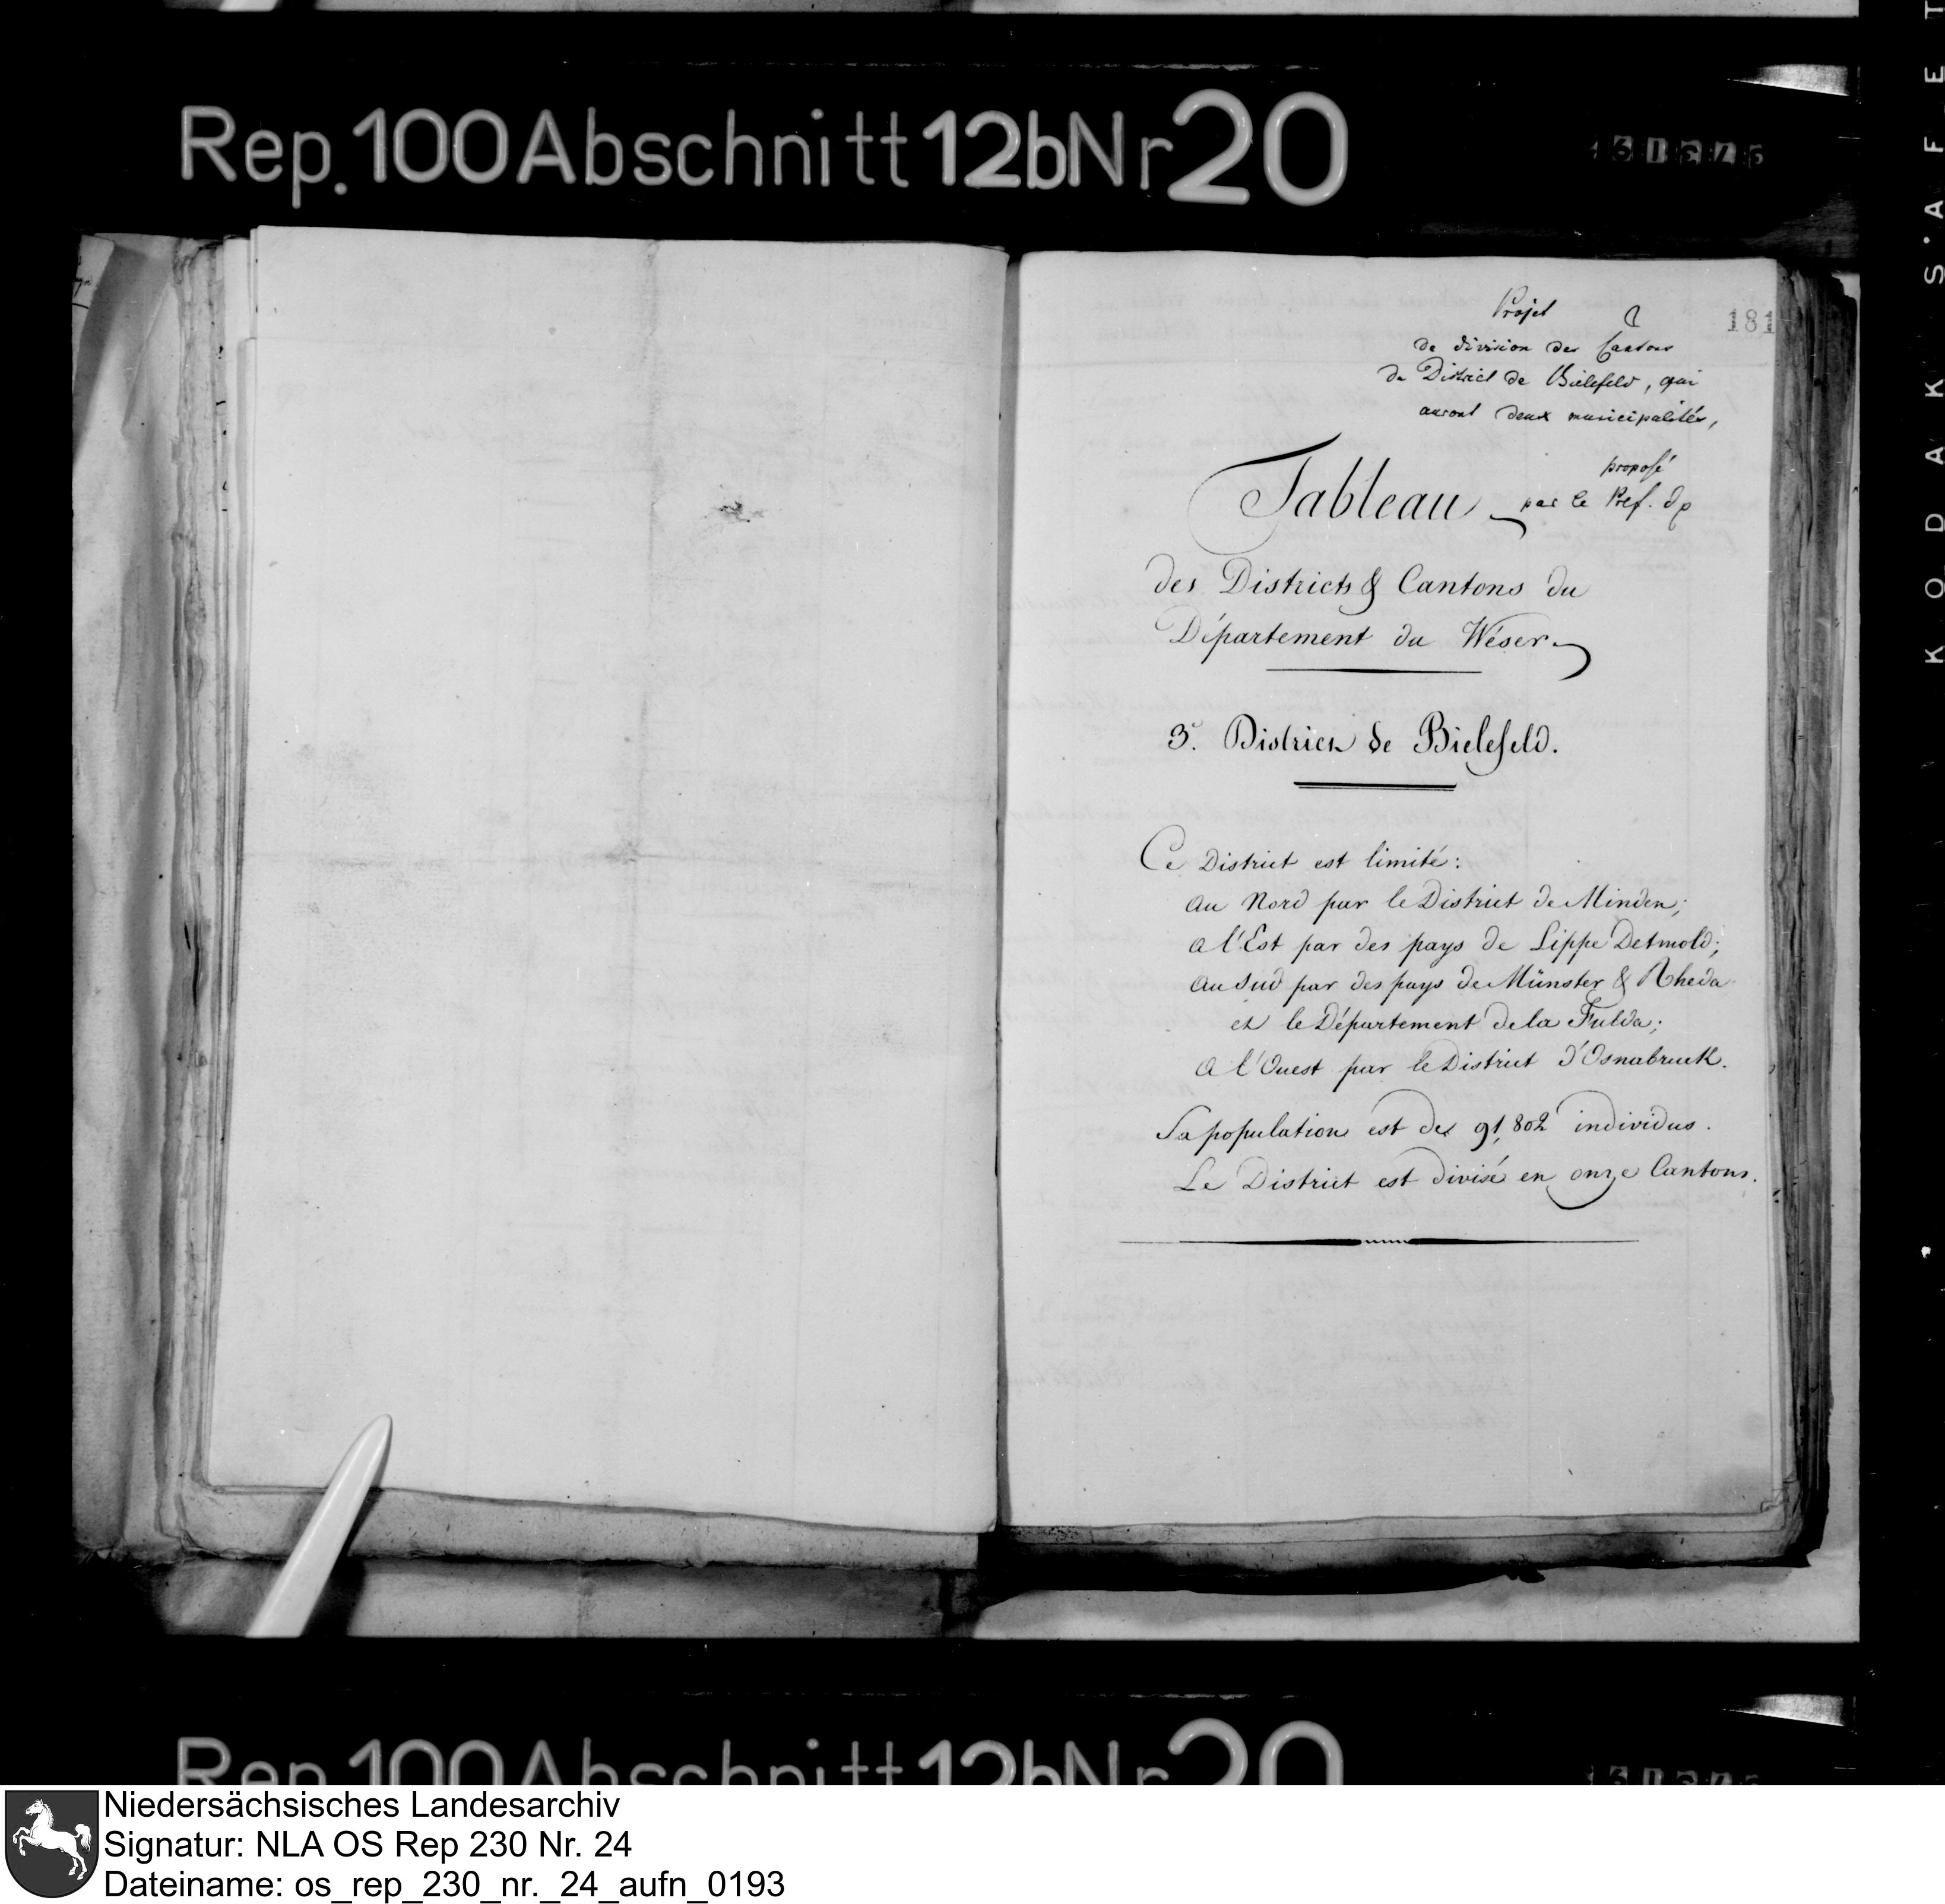 Rep. 100 Abschnitt 12b Nr 20
181
Projet
de division des Cantons
du District de Bielefeld, qui
auront deux municipalités,
proposé
par le Préf. dp
Tableau
des Districts & Cantons du
Département du Wéser.
3e. District de Bielefeld.
Ce District est limité:
au Nord par le District de Minden;
a l'Est par des pays de Lippe Detmold;
au Sud par des pays de Münster & Rheda
et le Département de la Fulda;
a l'Ouest par le District d'Osnabruck.
Sa population est de 91,802 individus.
Le District est divisé en onze Cantons.
KODAK SAFET
Rep. 100 Abschnitt 12b Nr 20
Niedersächsisches Landesarchiv
Signatur: NLA OS Rep 230 Nr. 24
Dateiname: os_rep_230_nr._24_aufn_0193